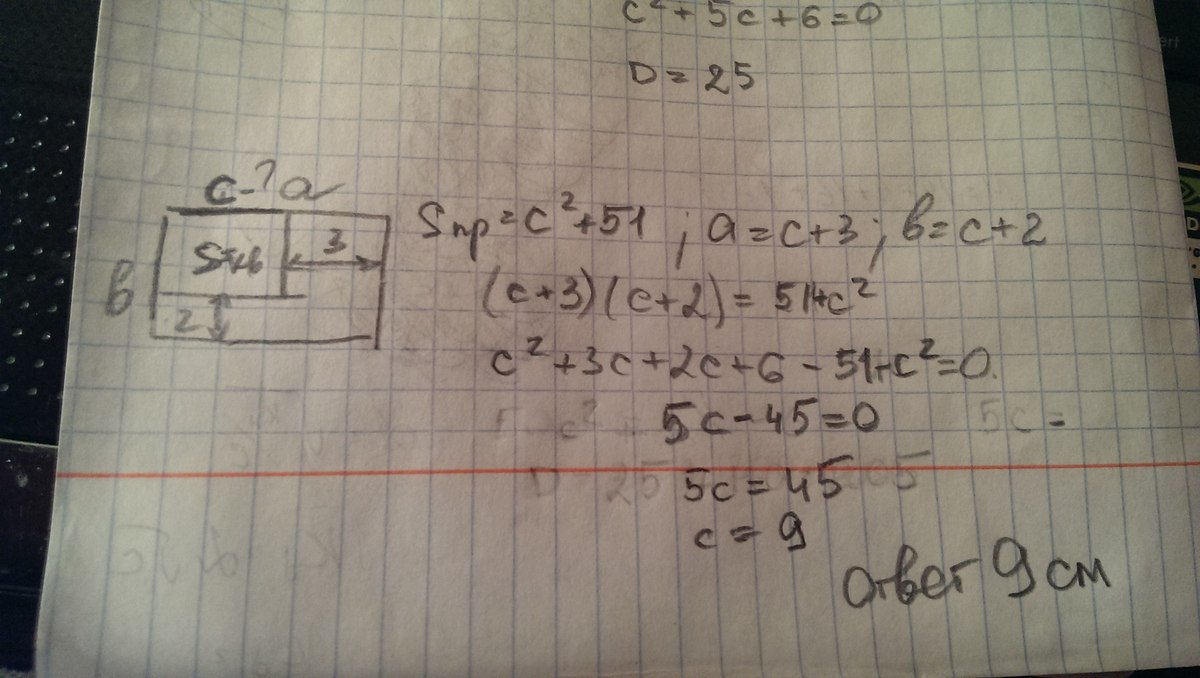 c² + 5c + 6 = 0
D = 25
c-? a
Sкв
3
в
2
Sпр = c² + 51 ; a = c + 3 ; в = c + 2
(c + 3) (c + 2) = 51 + c²
c² + 3c + 2c + 6 - 51 - c² = 0.
5c - 45 = 0
5c =
5c = 45
c = 9
ответ 9 см